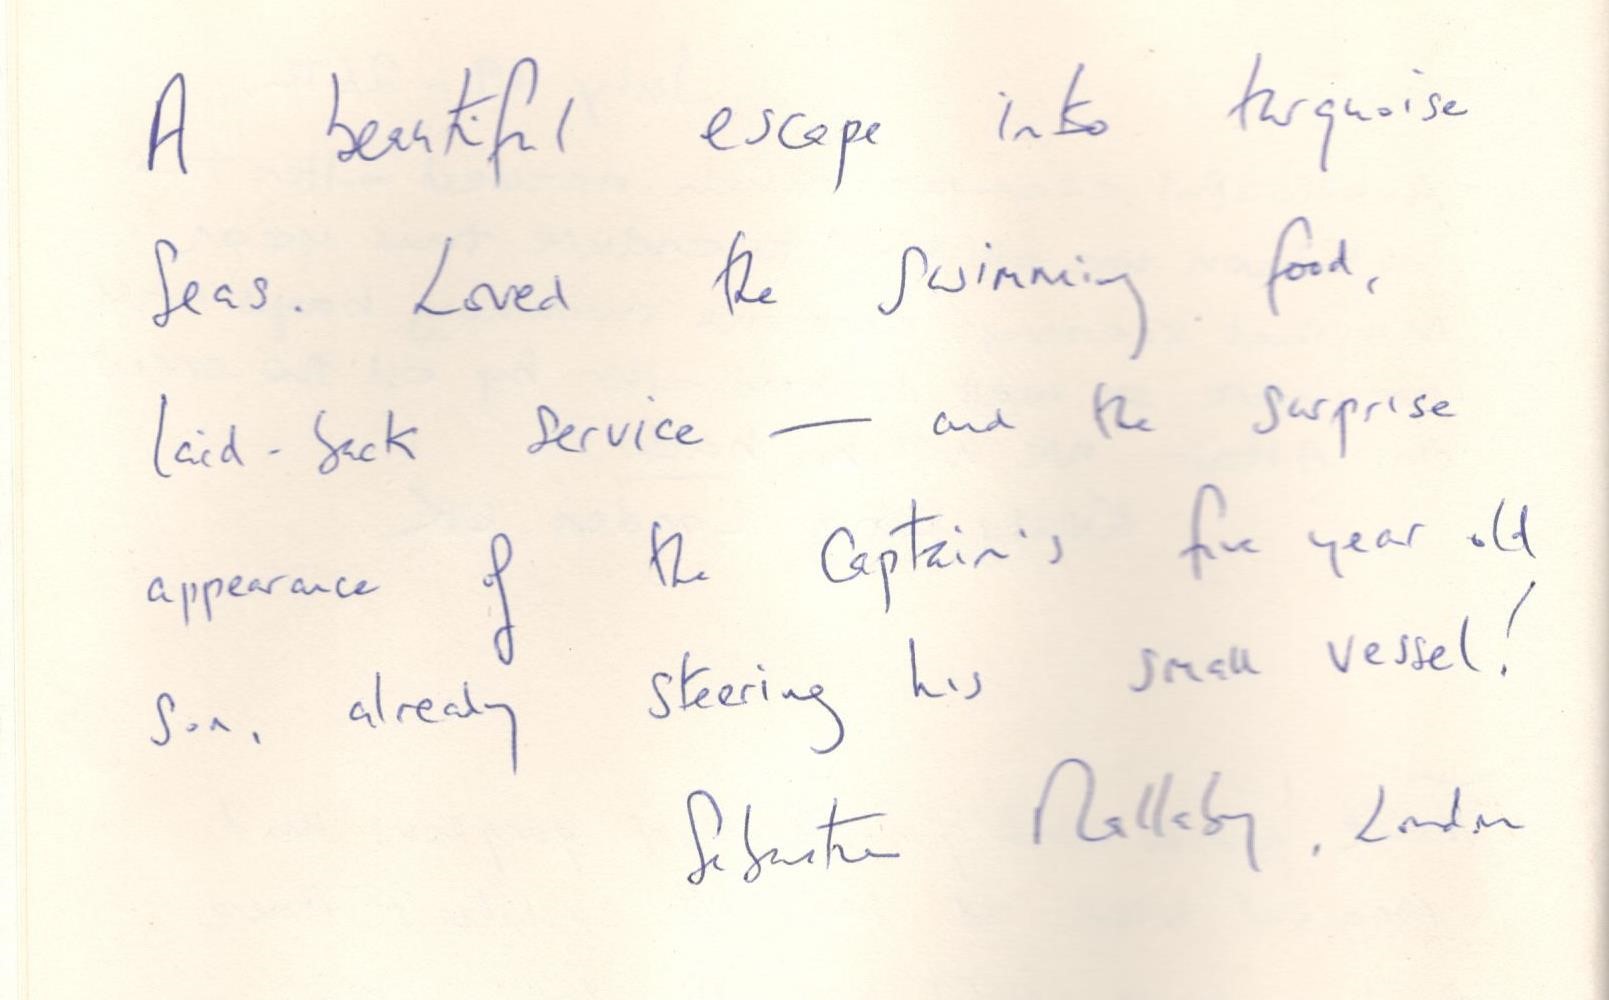 A beautiful escape into turquoise
seas. Loved the swimming food,
laid-back service — and the surprise
appearance of the Captain's five year old
son, already steering his small vessel!
Sebastian Mallaby, London